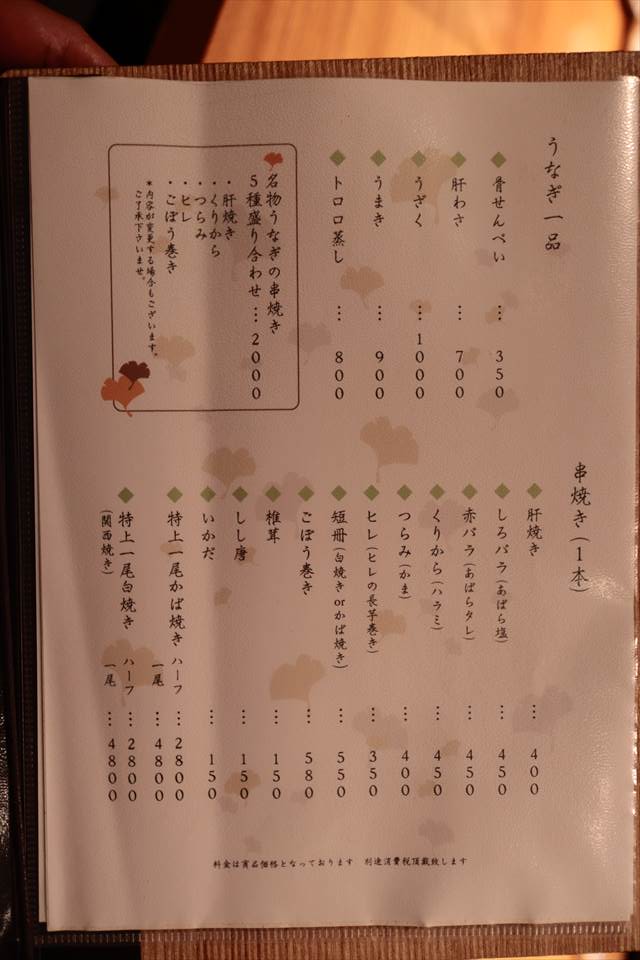 うなぎ一品
骨せんべい … 350
肝わさ … 700
うざく … 1000
うまき … 900
トロロ蒸し … 800
名物うなぎの串焼き
5種盛り合わせ … 2000
・肝焼き
・くりから
・つらみ
・ヒレ
・ごぼう巻き
*内容が変更する場合もございます。
ご了承下さいませ。
串焼き(1本)
肝焼き … 400
しろバラ(あばら塩) … 450
赤バラ(あばらタレ) … 450
くりから(ハラミ) … 450
つらみ(かま) … 400
ヒレ(ヒレの長芋巻き) … 350
短冊(白焼きorかば焼き) … 550
ごぼう巻き … 580
椎茸 … 150
しし唐 … 150
いかだ … 150
特上一尾かば焼き ハーフ … 2800
一尾 … 4800
特上一尾白焼き ハーフ … 2800
(関西焼き) 一尾 … 4800
料金は商品価格となっております 別途消費税頂戴致します